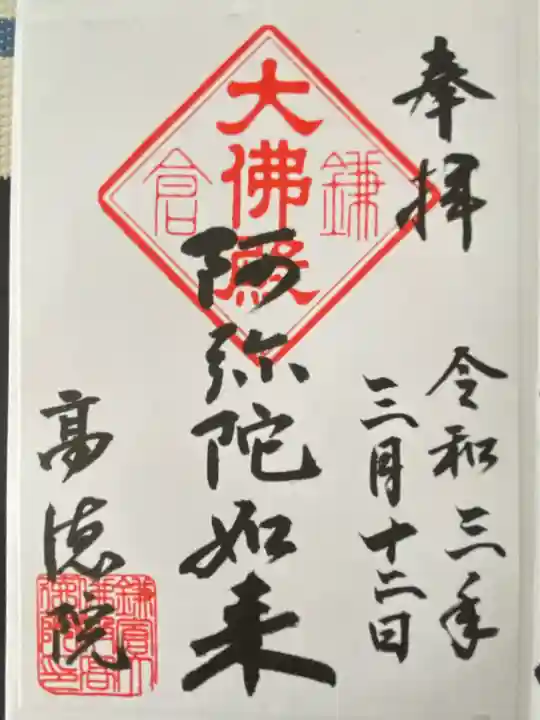 奉拝
令和三年
三月十二日
鎌倉
大佛殿
阿弥陀如来
高徳院